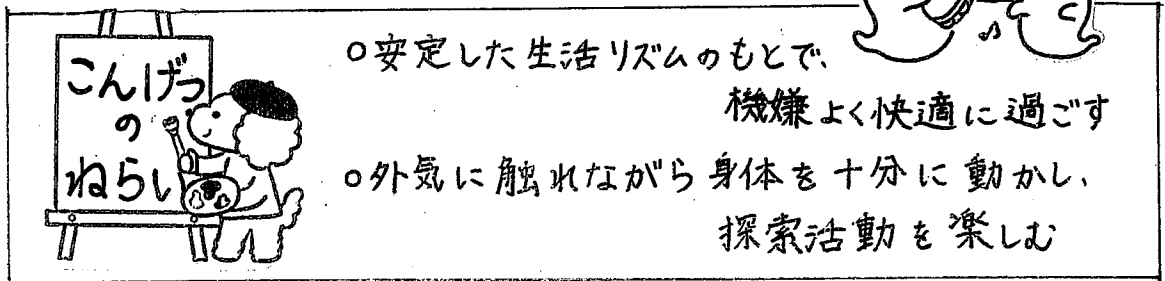 こんげつ
の
ねらい
○安定した生活リズムのもとで、
機嫌よく快適に過ごす
○外気に触れながら身体を十分に動かし、
探索活動を楽しむ